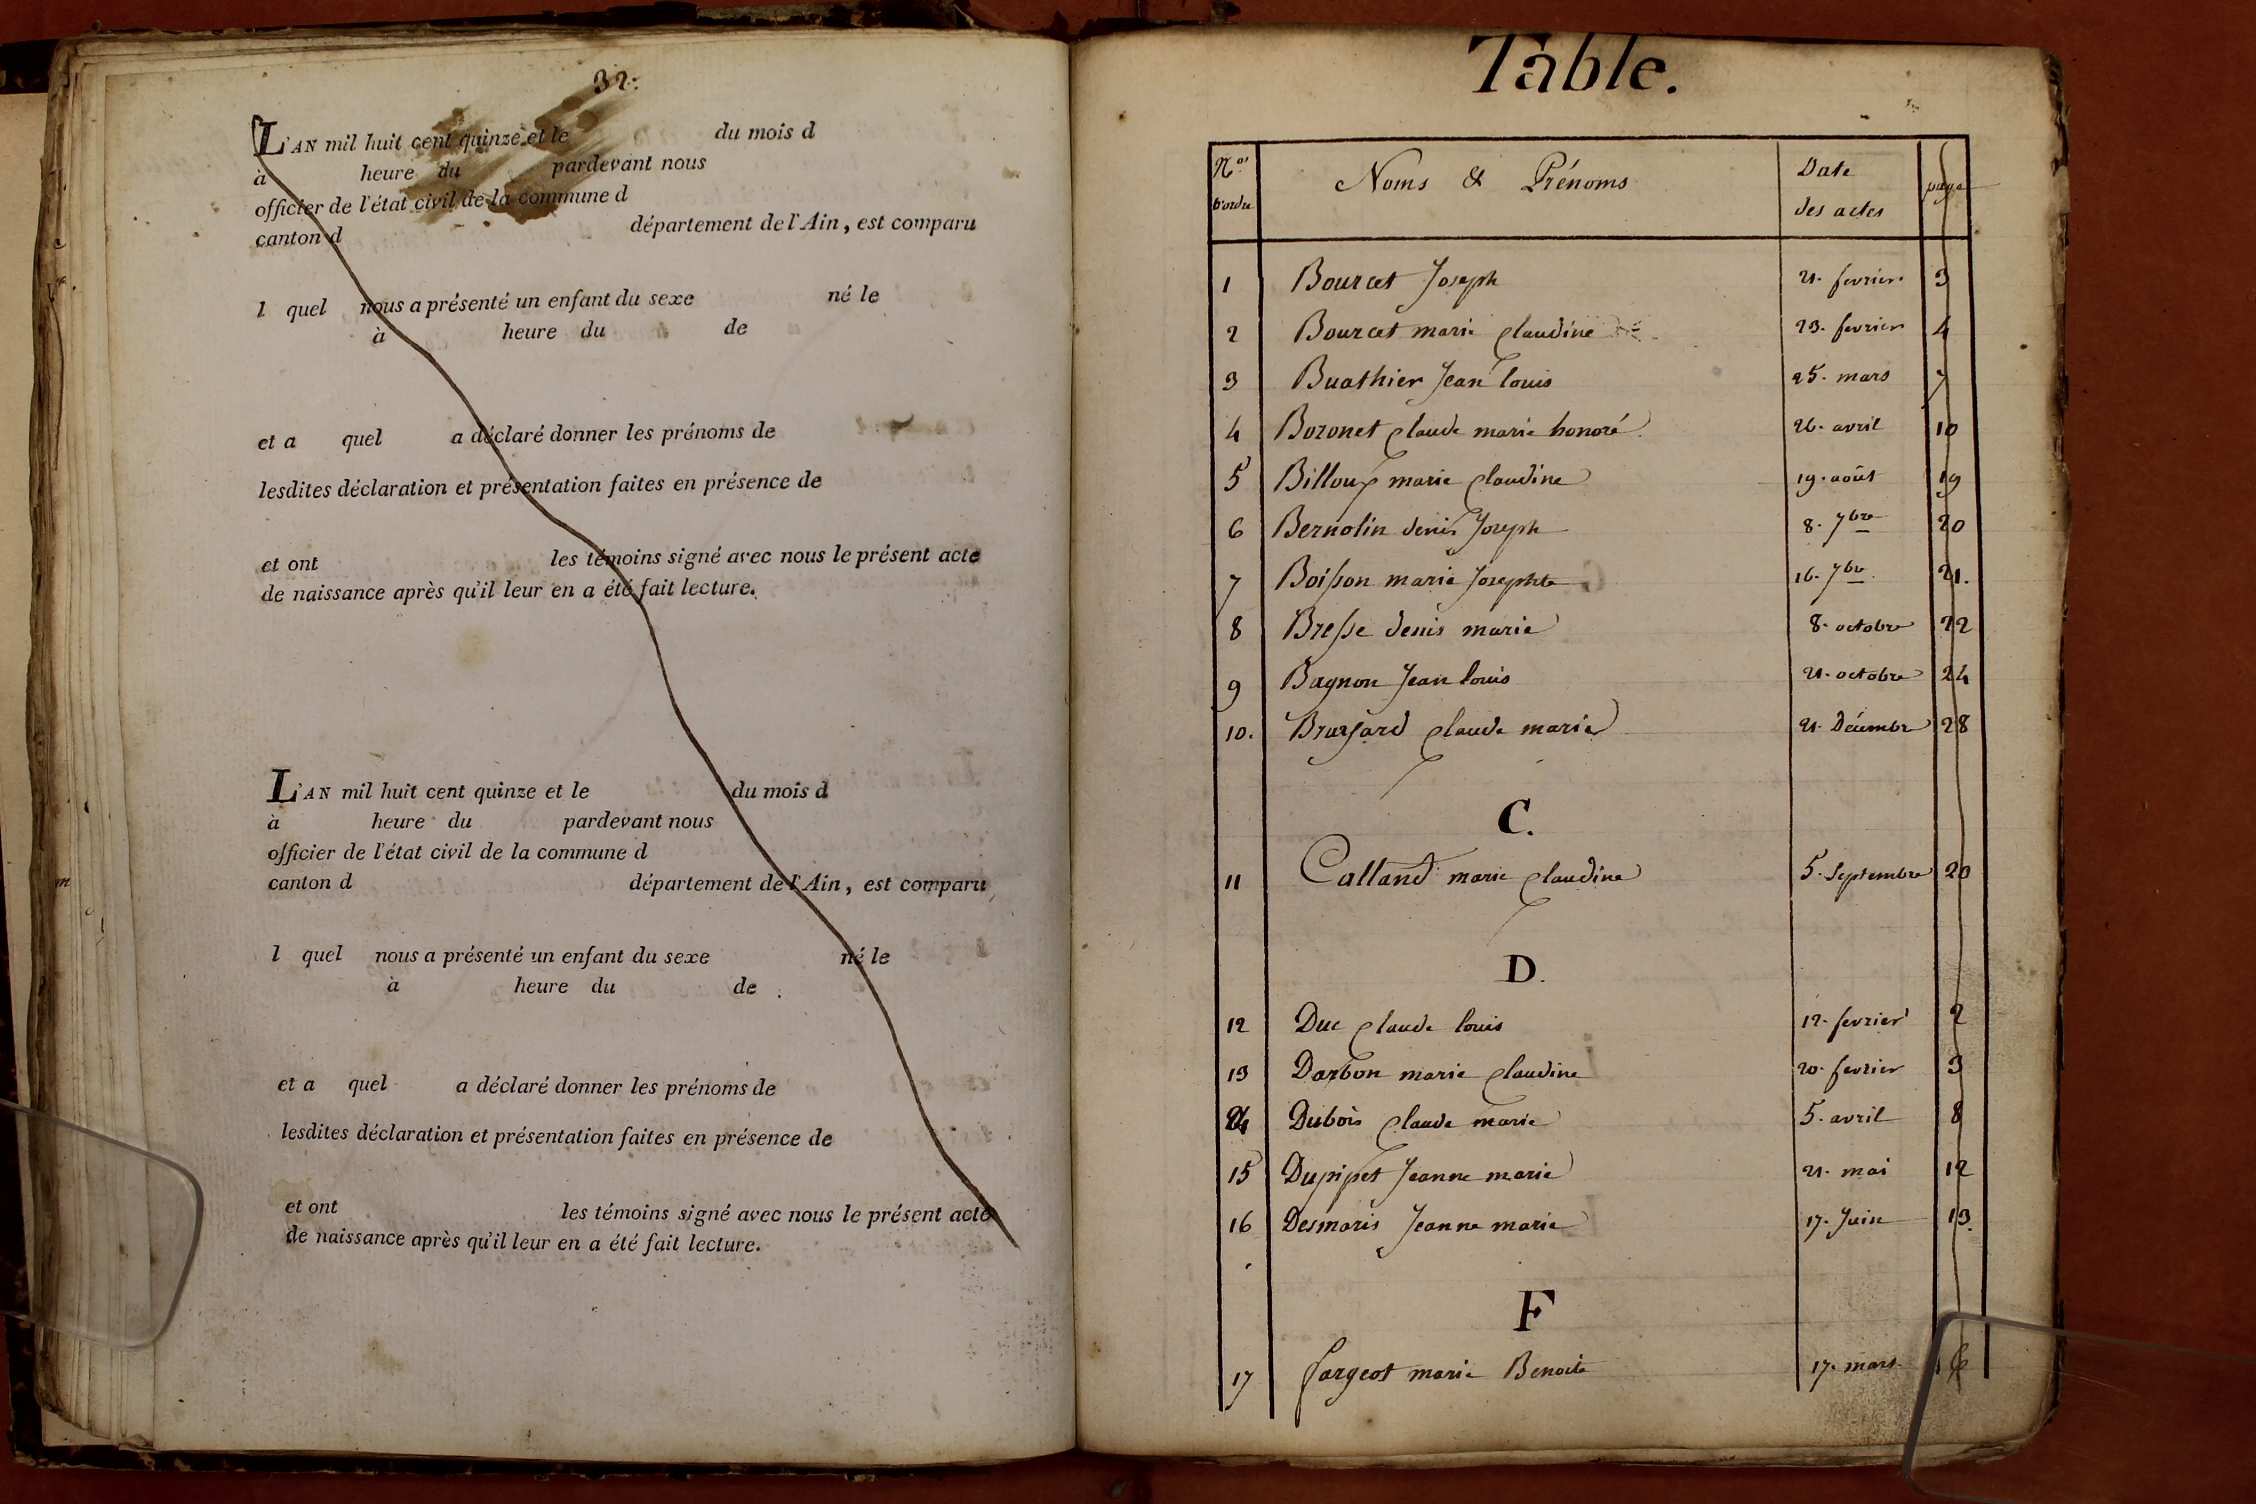 32.
L'AN mil huit cent quinze et le du mois d
à heure du pardevant nous
officier de l'état civil de la commune d
canton d département de l'Ain, est comparu
l quel nous a présenté un enfant du sexe né le
à heure du de
et a quel a déclaré donner les prénoms de
lesdites déclaration et présentation faites en présence de
et ont les témoins signé avec nous le présent acte
de naissance après qu'il leur en a été fait lecture.
L'AN mil huit cent quinze et le du mois d
à heure du pardevant nous
officier de l'état civil de la commune d
canton d département de l'Ain, est comparu
l quel nous a présenté un enfant du sexe né le
à heure du de
et a quel a déclaré donner les prénoms de
lesdites déclaration et présentation faites en présence de
et ont les témoins signé avec nous le présent acte
de naissance après qu'il leur en a été fait lecture.
Table.
Nos d'ordre Noms & Prénoms Date des actes page
1 Bourcet Joseph 21. fevrier 3
2 Bourcet marie claudine 23. fevrier 4
3 Buathier Jean louis 25. mars 7
4 Bozonet claude marie honoré 26. avril 10
5 Billoux marie claudine 19. août 19
6 Bernolin denis Joseph 8. 7bre 20
7 Boisson marie Josephte 16. 7bre 21.
8 Bresse denis marie 8. octobre 22
9 Bagnon Jean louis 21. octobre 24
10. claude marie 21. Décembre 28
C.
11 Calland marie claudine 5. Septembre 20
D.
12 Duc claude louis 12. fevrier 2
13 Darbon marie claudine 20. fevrier 3
14 Dubois claude marie 5. avril 8
15 Dupipet Jeanne marie 21. mai 12
16 Desmaris Jeanne marie 17. Juin 13.
F
17 fargeot marie Benoite 17. mars 6